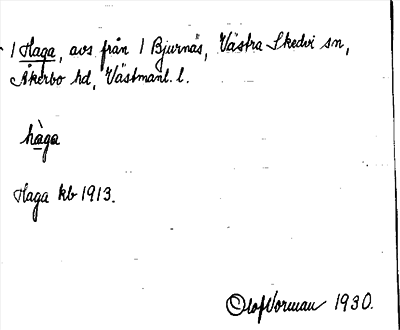 1 Haga, avs från 1 Bjurnäs, Västra Skedvi sn,
Åkerbo hd, Västmanl. l.
hàga
Haga kb 1913.
Olof Vorman 1930.